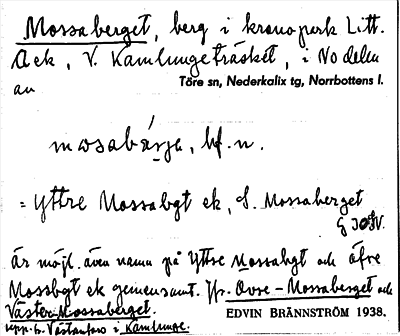 Mossaberget, berg i kronopark Litt.
Aek, V. Kamlungeträsket, i No delen
av Töre sn, Nederkalix tg, Norrbottens l.
bf. n.
= Yttre Mossabgt ek, S. Mossaberget
Är möjl. även namn på Yttre Mossabgt och öfre
Mossbgt ek gemensamt. Jfr. Övre-Mossaberget och
Väster-Mossaberget.
EDVIN BRÄNNSTRÖM 1938.
i Kamlunge.